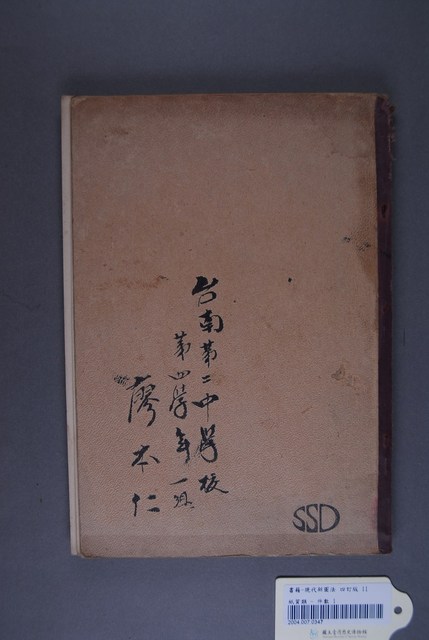 台南第二中學校
第四學年一組
廖本仁
SSD
書籍-現代新圖法 四訂版 II
紙質類 - 件數 1
2004.007.0347
國立臺灣歷史博物館